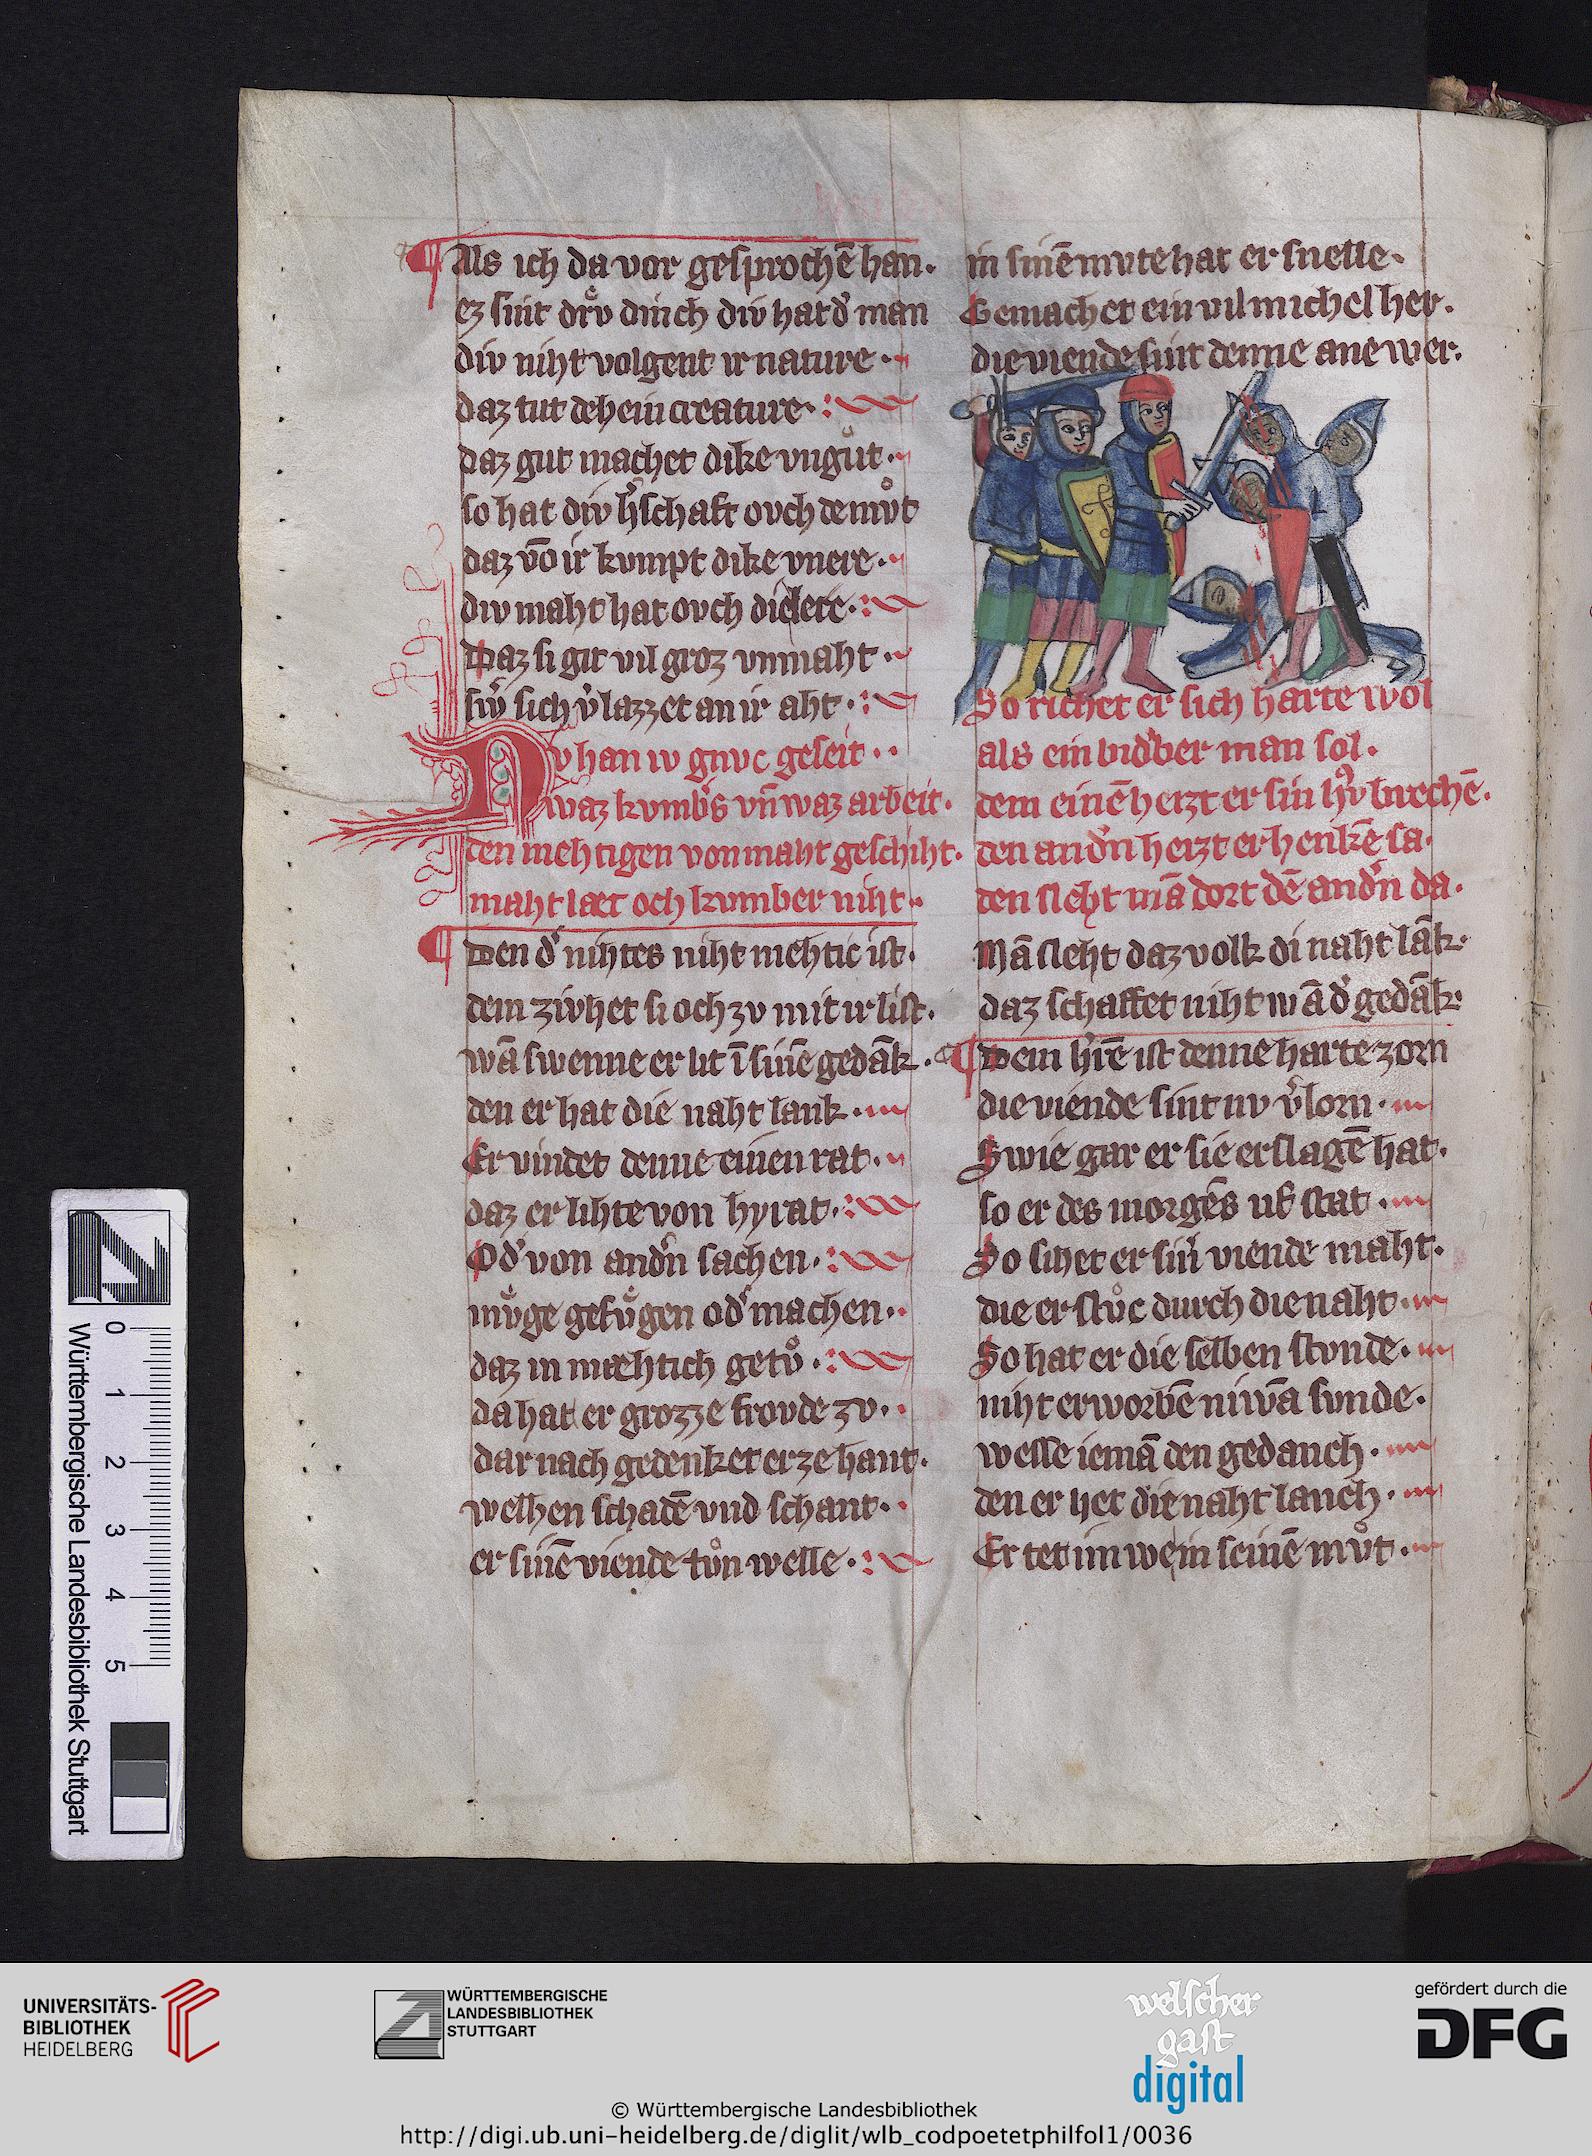 Als ich da vor gesprochē han.
ez sint drv̊ dinch div hat d' man
div niht volgent ir nature.
daz tut dehein creature.
daz gut machet dike vngůt.
so hat div h'schaft ovch den mv̊t
daz vō ir kvmpt dike vnere.
div maht hat ovch die lere.
Daz si git vil groz vnmaht.
sw' sich v'lazzet an ir aht.
Nv han iv gnvc geseit.
waz kvmb's vn̄ waz arbeit.
den mehtigen von maht geschiht.
maht læt och kvmber niht.
Den d' nihtes niht mehtic ist.
dem zivhet si och zv mit ir list.
wā swenne er lit ī sinē gedāk.
den er hat die naht lank.
Er vindet denne einen rat.
daz er lihte von hyrat.
Od' von and'n sachen.
mv̊ge gefv̊gen od' machen.
daz in mæhtich getv̊.
da hat er grozze frovde zv.
dar nach gedenket er ze hant.
welhen schadē vnd schant.
er sinē viende tv̊n welle.
in sinē mvte hat er snelle.
Gemachet ein vil michel her.
die viende sint denne ane wer.
So richet er sich harte wol
als ein bid'ber man sol.
dem einē heizt er sin hv̊s brechē.
den and'n heizt er henkē sa.
den sleht mā dort dē and'n da.
Mā sleht daz volk di naht lāk.
daz schaffet niht wā d' gedāk.
Dem h'rē ist denne harte zorn
die viende sint nv v'lorn.
Swie gar er sie erslagē hat.
so er des morgēs uf stat.
So sihet er sin' viende maht.
die er slv̊c durch die naht.
So hat er die selben stvnde.
niht erworbē niwā svnde.
welle iemā den gedanch.
den er het die naht lanch.
Er tet im we in seinē mv̊t.
0 1 2 3 4 5
Württembergische Landesbibliothek Stuttgart
UNIVERSITÄTS-
BIBLIOTHEK
HEIDELBERG
WÜRTTEMBERGISCHE
LANDESBIBLIOTHEK
STUTTGART
welscher
gast
digital
gefördert durch die
DFG
© Württembergische Landesbibliothek
http://digi.ub.uni-heidelberg.de/diglit/wlb_codpoetetphilfol1/0036